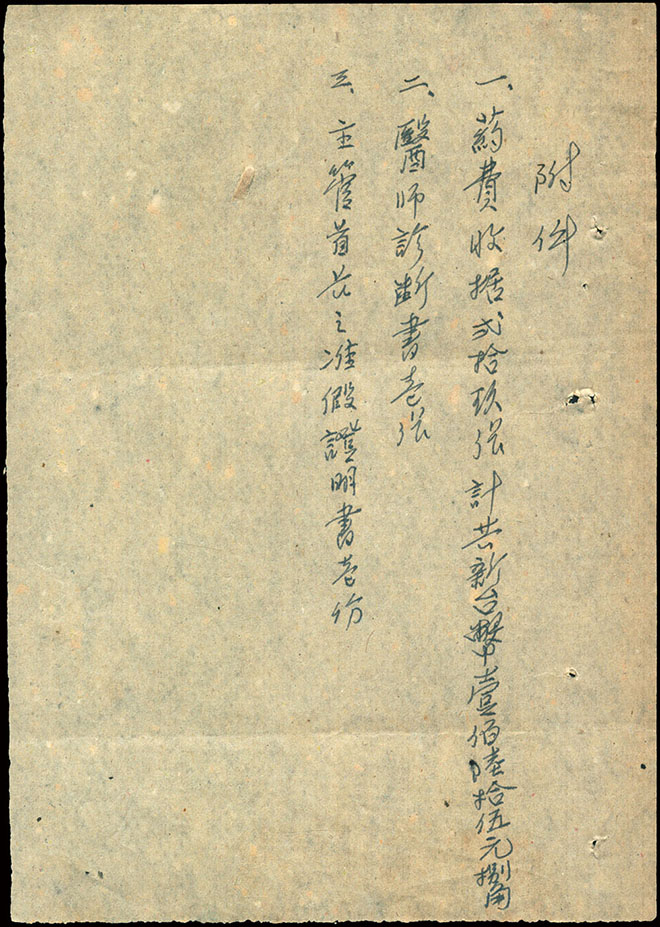 附件
一、葯費收据弍拾玖張計共新台幣壹佰陸拾伍元捌角
二、醫師診断書壱張
三、主管首長之准假證明書壱份